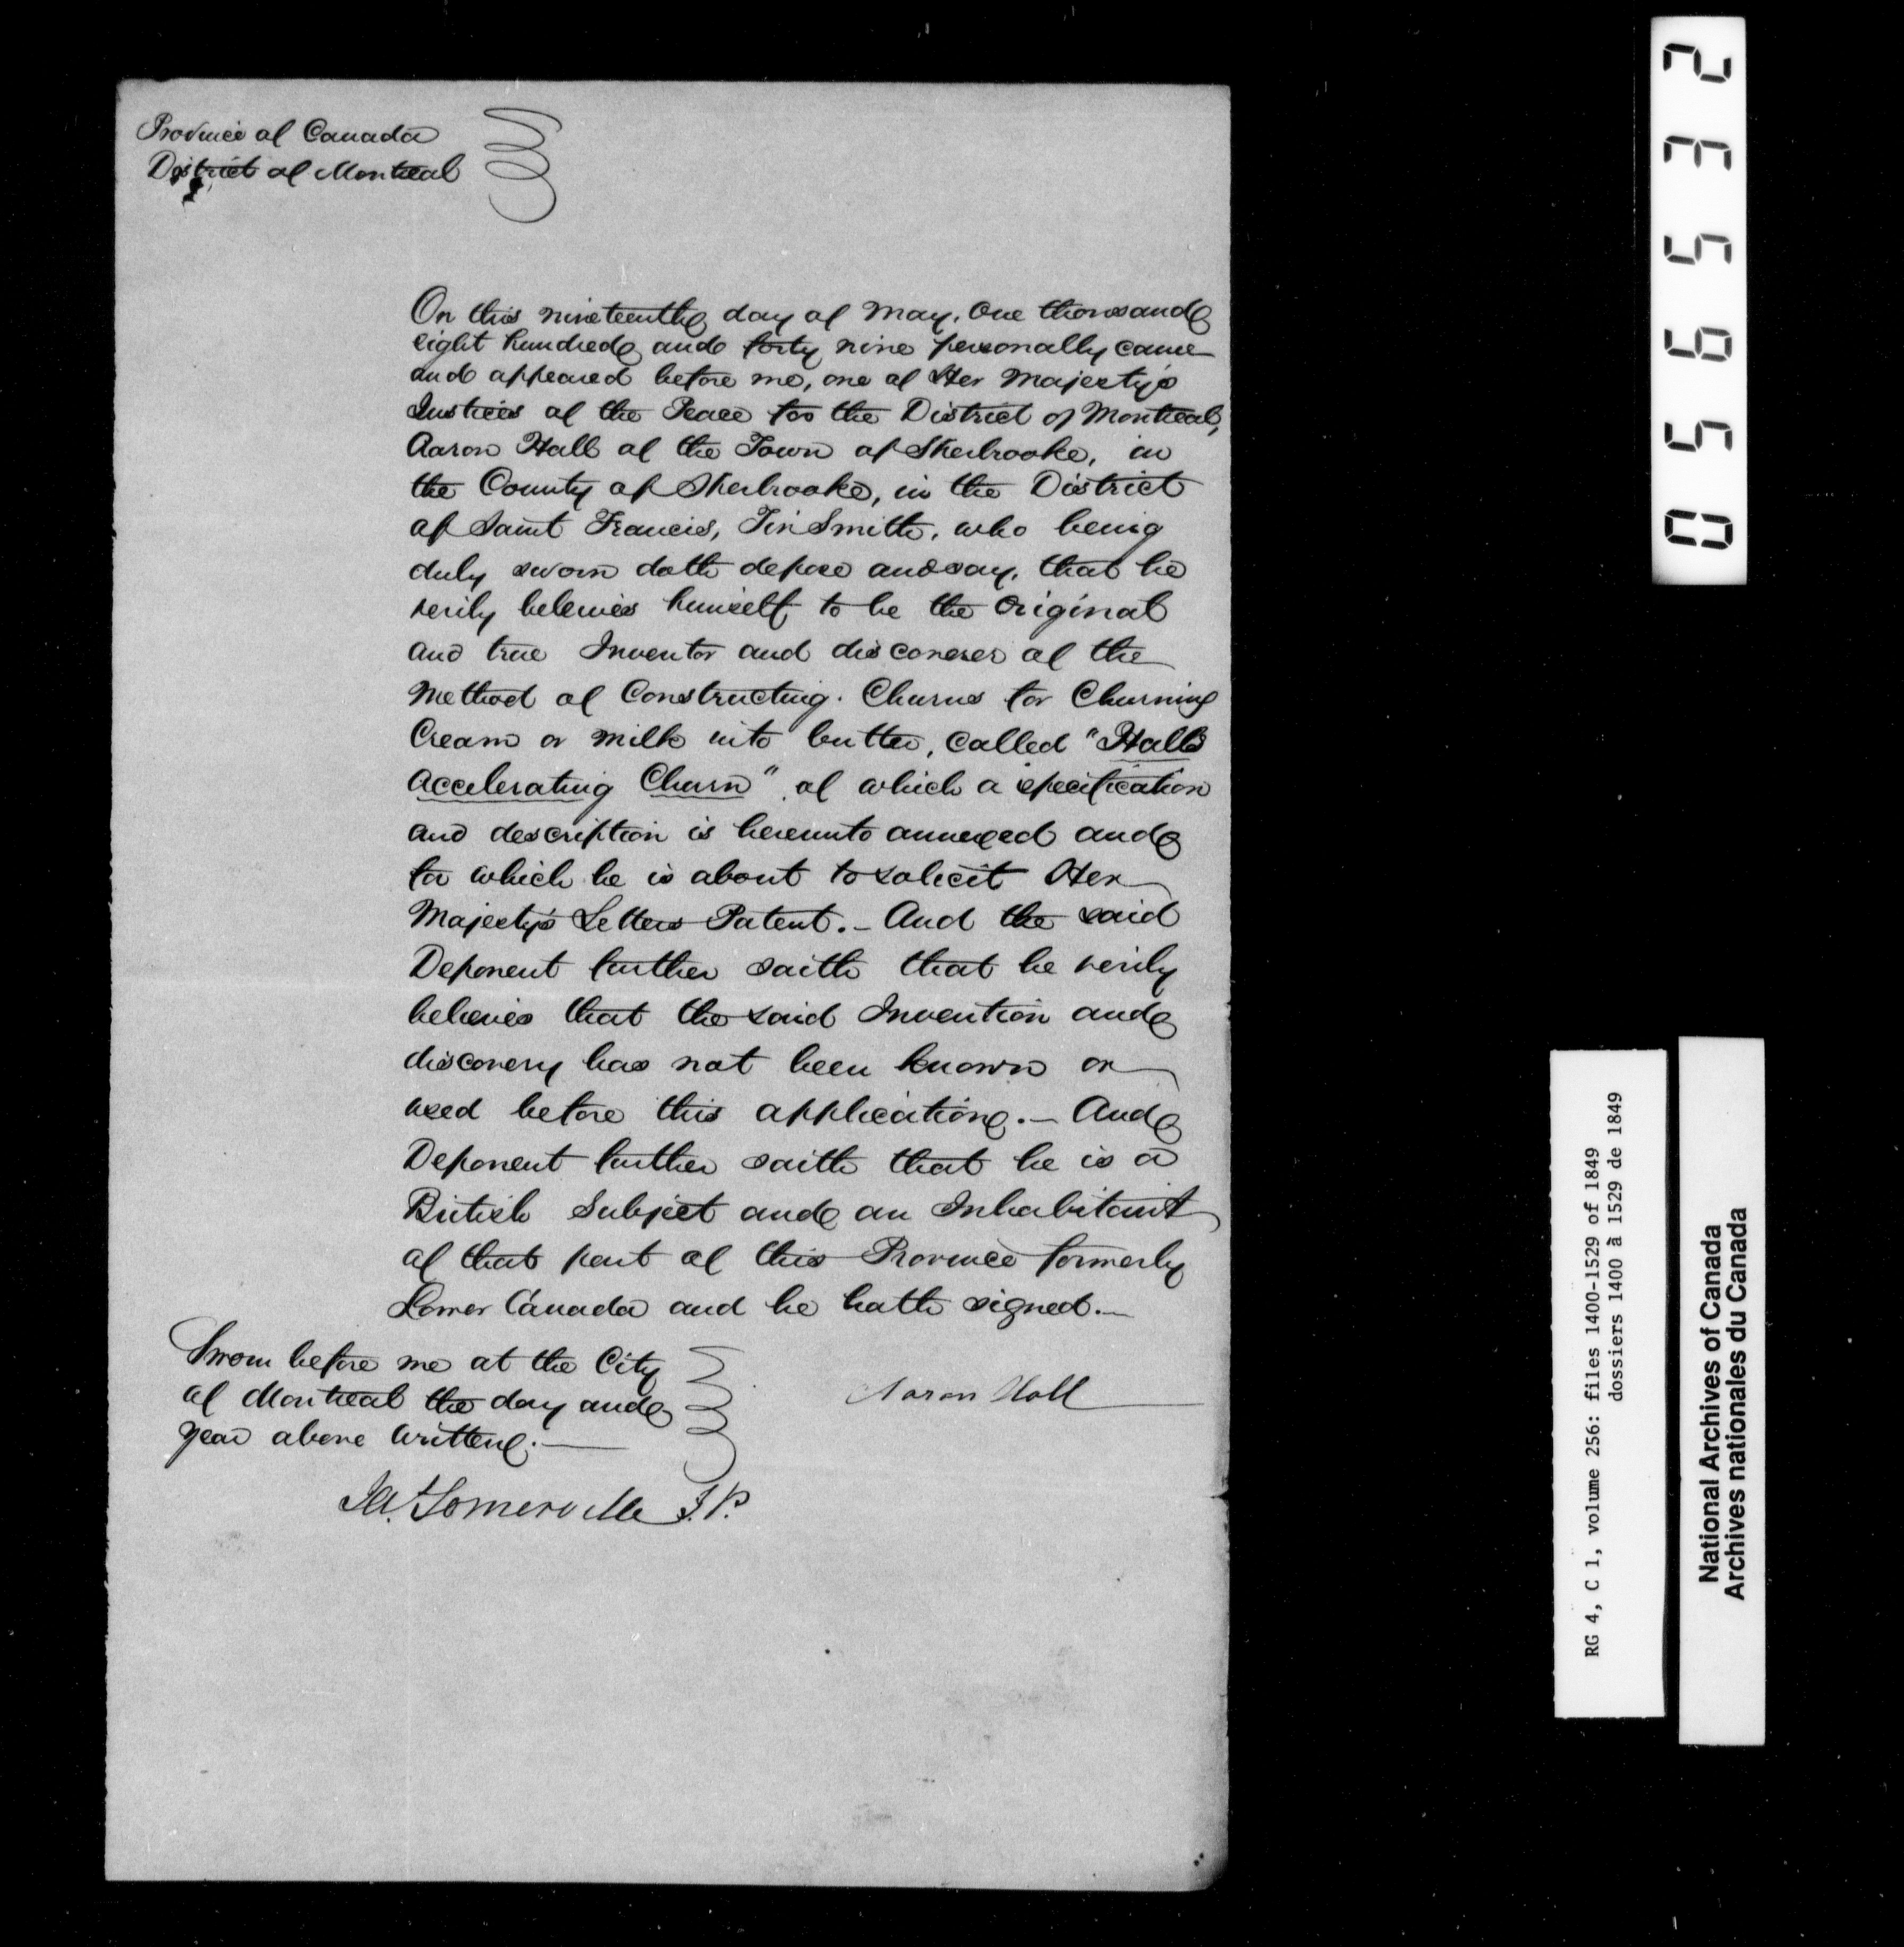 Province of Canada
District of Montreal
On this nineteenth day of May, One thousand
eight hundred and forty nine personally came
and appeared before me, one of Her Majesty's
Justices of the Peace for the District of Montreal,
Aaron Hall of the Town of Sherbrooke, in
the County of Sherbrooke, in the District
of Saint Francis, Tin Smith, who being
duly sworn doth depose and say, that he
verily believes himself to be the Original
and true Inventor and discoverer of the
Method of Constructing Churns for Churning
Cream or milk into butter, called "Halls
Accelerating Churn" of which a specification
and description is hereunto annexed and
for which he is about to solicit Her
Majesty's Letters Patent. - And the said
Deponent further saith that he verily
believes that the said Invention and
discovery has not been known or
used before this application. - And
Deponent further saith that he is a
British Subject and an Inhabitant
of that part of this Province formerly
Lower Canada and he hath signed. -
Sworn before me at the City
of Montreal the day and
year above written. -
Aaron Hall
Ja. Somerville J.P.
055532
RG 4, C 1, volume 256: files 1400-1529 of 1849
dossiers 1400 à 1529 de 1849
National Archives of Canada
Archives nationales du Canada